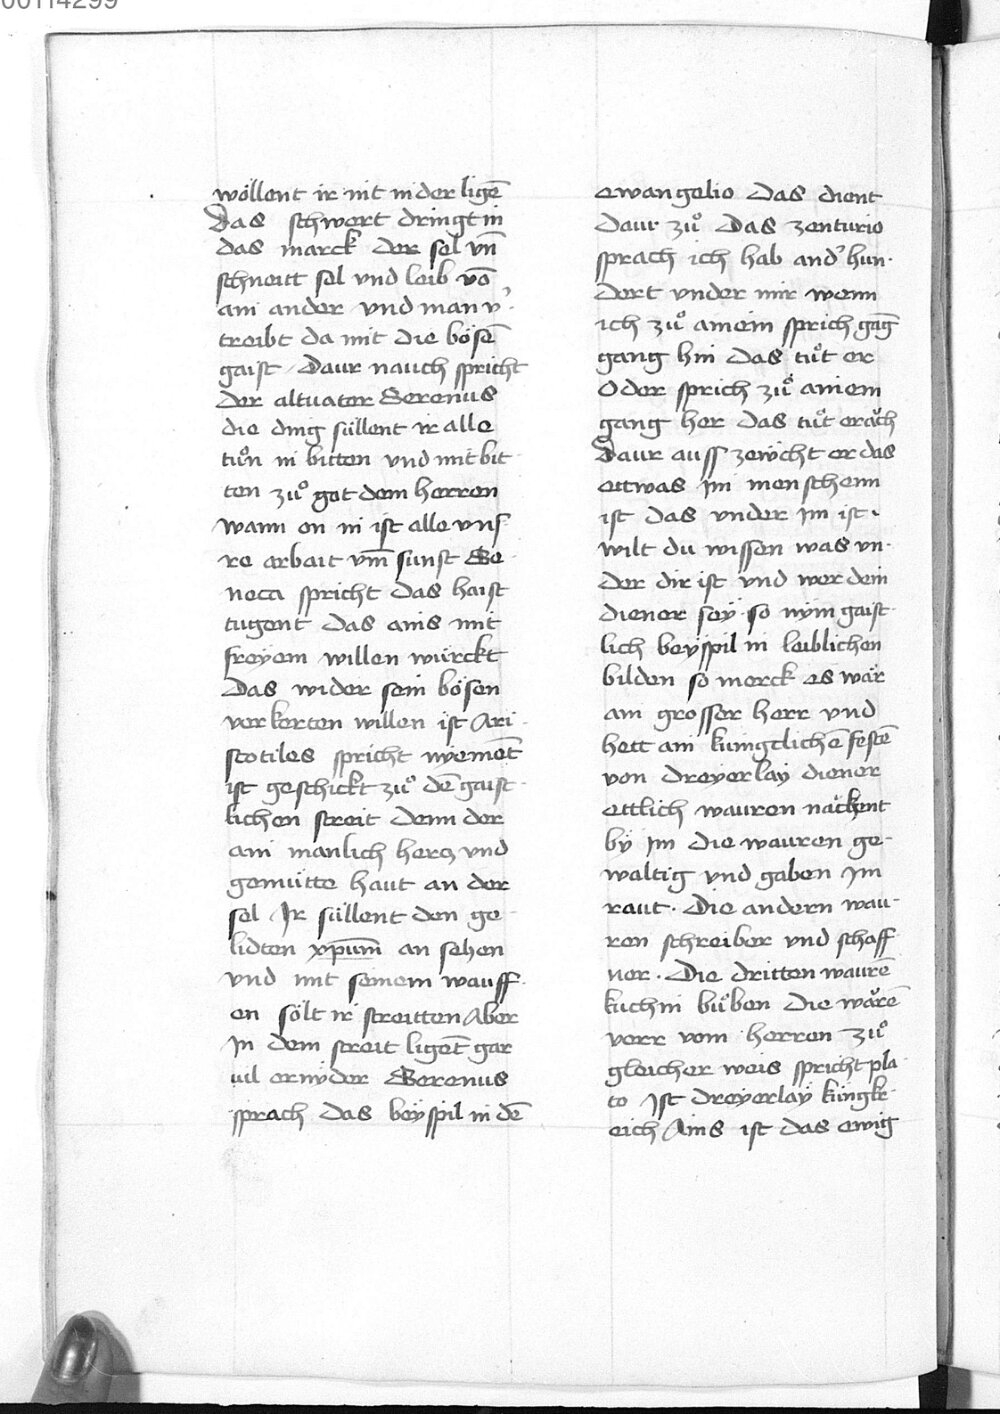 00114299
wöllent ir nit nider ligē
Das schwert dringt in
das marck der sel vn̄
schneitt sel vnd leib vō
ain ander vnd man v᾽
treibt da mit die bösē
gaist Daur nauch spricht
der altuator Serenus
die ding süllent ir alle
tuͦn in bitten vnd mit bit
ten zuͦ got dem herren
wann on in ist alle vns
re arbait vm̄ sunst Se
neca spricht das haist
tugent das ains mit
freyem willen würckt
Das wider sein bösen
verkerten willen ist Ari
stotiles spricht nyemēt
ist geschickt zuͦ dē gaist
lichen streit denn der
ain manlich hercz vnd
gemütte haut an der
sel Ir süllent den ge
lidten xp̄um an sehen
vnd mit seinem wauff
en sölt ir streitten Aber
In dem streit ligēt gar
uil ernyder Serenus
sprach das beyspil in dē
ewangelio Das dient
daur zuͦ Das zenturio
sprach ich hab and᾽ hun-
dert vnder mir wenn
ich zuͦ ainem sprich gāg
gang hin das tuͦt er
Oder sprich zuͦ ainem
gang her das tuͦt er äch
Daur auss zewcht er das
ettwas im menschenn
ist das vnder im ist.
wilt du wissen was vn-
der dir ist vnd wer dein
diener sey so nym gaist
lich beyspil in leiblichen
bilden so merck es wär
ain grosser herr vnd
hett ain küngtlichē festē
von dreyerlay diener
ettlich wauren näckent
by im die wauren ge-
waltig vnd gaben im
raut. Die andern wau-
ren schreiber vnd schaff
ner. Die dritten waurē
kuchin buͦben die wärē
verr vom herren zuͦ
gleicher weis spricht pla
to Ist dreyerlay küngkr
eich Ains ist das ewig